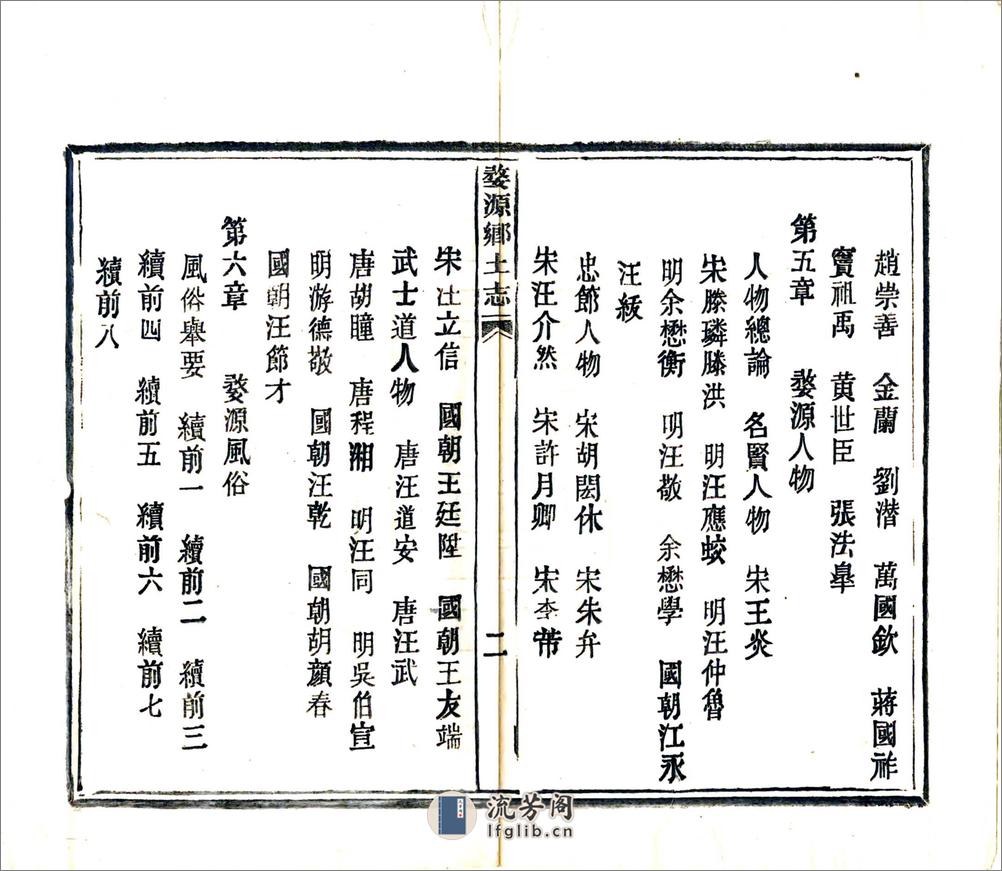 趙崇善 金蘭 劉潛 萬國欽 蔣國祚
竇祖禹 黄世臣 張法臯
第五章 婺源人物
人物總論 名賢人物 宋王炎
宋滕璘滕洪 明汪應蛟 明汪仲魯
明余懋衡 明汪敬 余懋學 國朝江永
汪紱
忠節人物 宋胡閎休 宋朱弁
宋汪介然 宋許月卿 宋李芾
婺源鄉土志 二
宋汪立信 國朝王廷陞 國朝王友端
武士道人物 唐汪道安 唐汪武
唐胡瞳 唐程湘 明汪同 明吳伯宣
明游德敬 國朝汪乾 國朝胡顔春
國朝汪節才
第六章 婺源風俗
風俗舉要 續前一 續前二 續前三
續前四 續前五 續前六 續前七
續前八
流芳阁
lfglib.cn